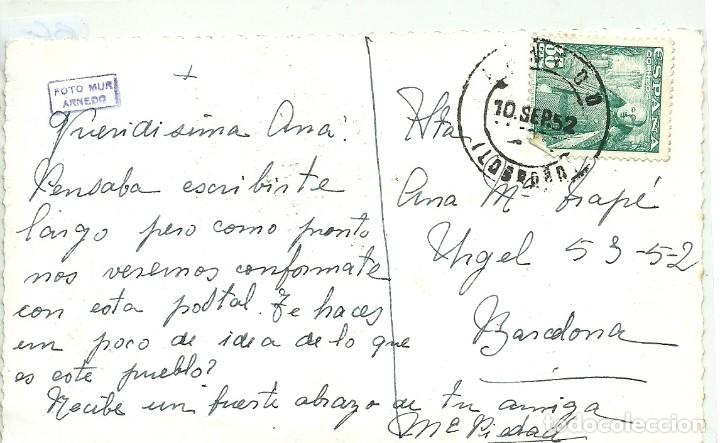 FOTO MUR
ARNEDO
+
Queridisima Ana:
Pensaba escribirte
largo pero como pronto
nos veremos conformate
con esta postal. Te haces
un poco de idea de lo que
es este pueblo?
Recibe un fuerte abrazo de tu amiga
Mª Piedad
Hta
Ana Mª Trapé
Urgel 53-5-2
Barcelona
10.SEP.52
(LOGROÑO)
ESPAÑA
CORREOS
todocoleccion.net